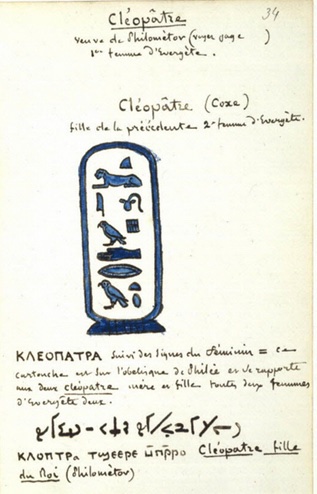 34
Cléopâtre
veuve de Philométor (voyez page )
1re femme d'Evergète.
Cléopâtre (Coxe)
fille de la précédente 2e femme d'Evergète.
ΚΛΕΟΠΑΤΡΑ Suivi des signes du féminin = ce
cartouche est sur l'obélisque de Philée et se rapporte
aux deux cléopatre mère et fille toutes deux femmes
d'Evergète deux.
ΚΛΟΠΤΡΑ ΤϢΕΕΡΕ Cléopatre fille
du Roi (Philométor)